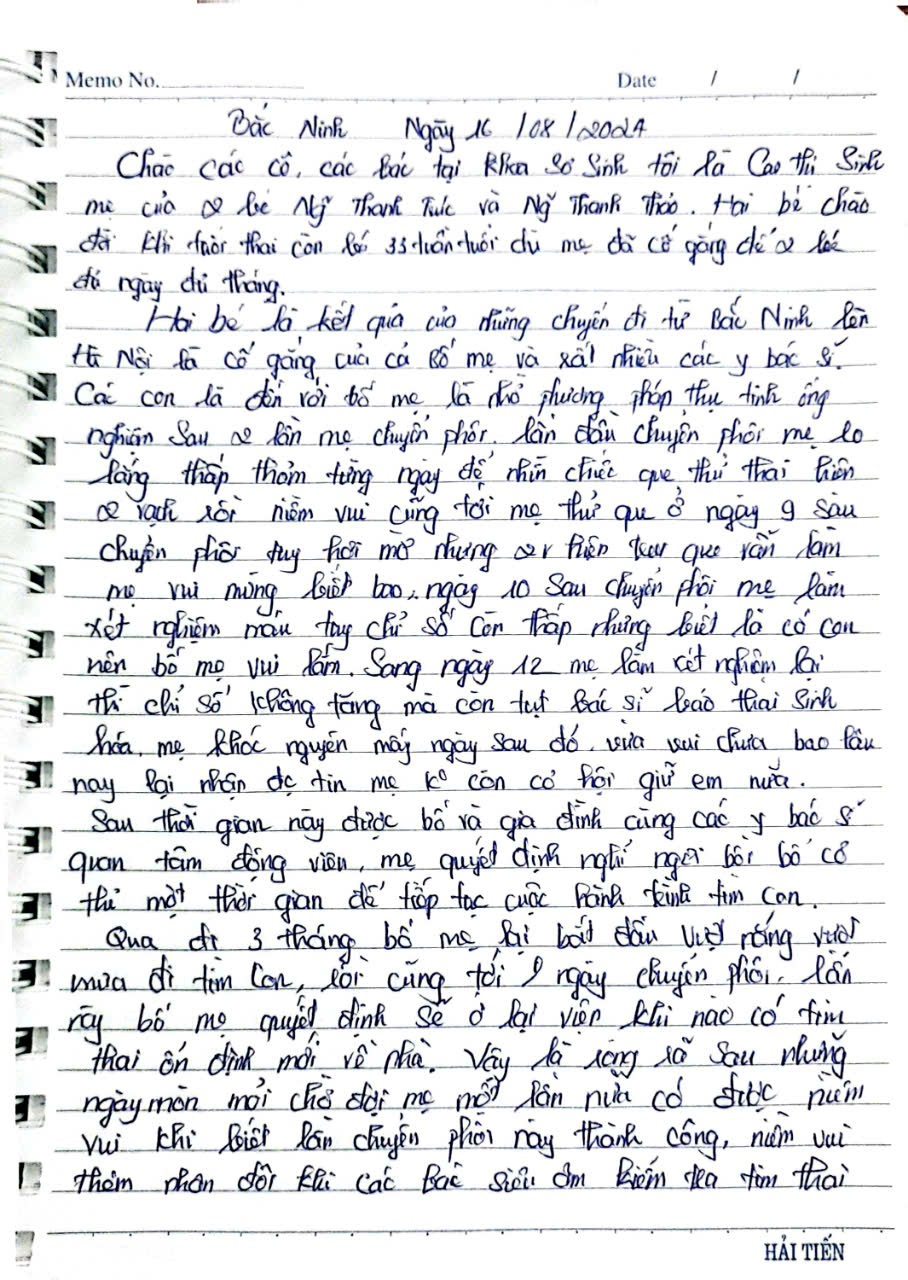 Memo No.
Date / /
Bắc Ninh Ngày 16 /08 /2024
Chào các cô, các bác tại khoa Sơ Sinh tôi là Cao thị Sinh
mẹ của 2 bé Ng~ Thanh Trúc và Ng~ Thanh Thảo. Hai bé chào
đời khi tuổi thai còn bé 33 tuần tuổi dù mẹ đã cố gắng để 2 bé
đủ ngày đủ tháng.
Hai bé là kết quả của những chuyến đi từ Bắc Ninh lên
Hà Nội là cố gắng của cả Bố mẹ và rất nhiều các y bác sĩ.
Các con là đến với bố mẹ là nhờ phương pháp thụ tinh ống
nghiệm Sau 2 lần mẹ chuyển phôi. lần đầu chuyển phôi mẹ lo
lắng thấp thỏm từng ngày để nhìn chiếc que thử thai hiện
2 vạch rồi niềm vui cũng tới mẹ thử que ở ngày 9 sau
chuyển phôi tuy hơi mờ nhưng 2v hiện que vẫn làm
mẹ vui mừng biết bao, ngày 10 sau chuyển phôi mẹ làm
xét nghiệm máu tay chỉ số còn thấp nhưng biết là có con
nên bố mẹ vui lắm. Sang ngày 12 mẹ làm xét nghiệm lại
thì chỉ số không tăng mà còn tụt bác sĩ báo thai sinh
hóa. mẹ khóc nguyên mấy ngày sau đó. vừa vui chưa bao lâu
nay lại nhận đc tin mẹ k° còn cơ hội giữ em nữa.
Sau thời gian này được bố và gia đình cùng các y bác sĩ
quan tâm động viên, mẹ quyết định nghỉ ngơi bồi bổ cơ
thể một thời gian để tiếp tục cuộc hành trình tìm con.
Qua đi 3 tháng bố mẹ lại bắt đầu vượt nắng vượt
mưa đi tìm con, rồi cũng tới ngày chuyển phôi. lần
này bố mẹ quyết định sẽ ở lại viện khi nào có tim
thai ổn định mới về nhà. Vậy là ròng rã sau những
ngày mòn mỏi chờ đợi mẹ một lần nữa có được niềm
vui khi biết lần chuyển phôi này thành công, niềm vui
thêm nhân đôi khi các Bác siêu âm kiểm tra tim thai
HẢI TIẾN